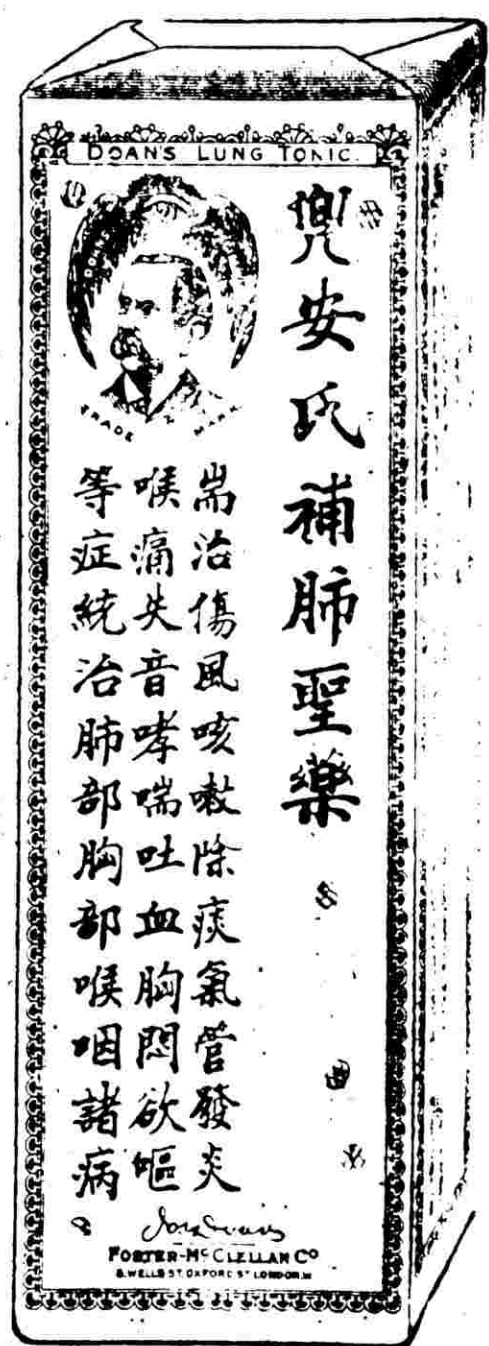 DOAN'S LUNG TONIC.
TRADE MARK
兜安氏補肺聖藥
耑治傷風咳嗽除痰氣管發炎
喉痛失音哮喘吐血胸悶欲嘔
等症統治肺部胸部喉咽諸病
FOSTER-McCLELLAN Co
8, WELLS ST. OXFORD ST. LONDON. W